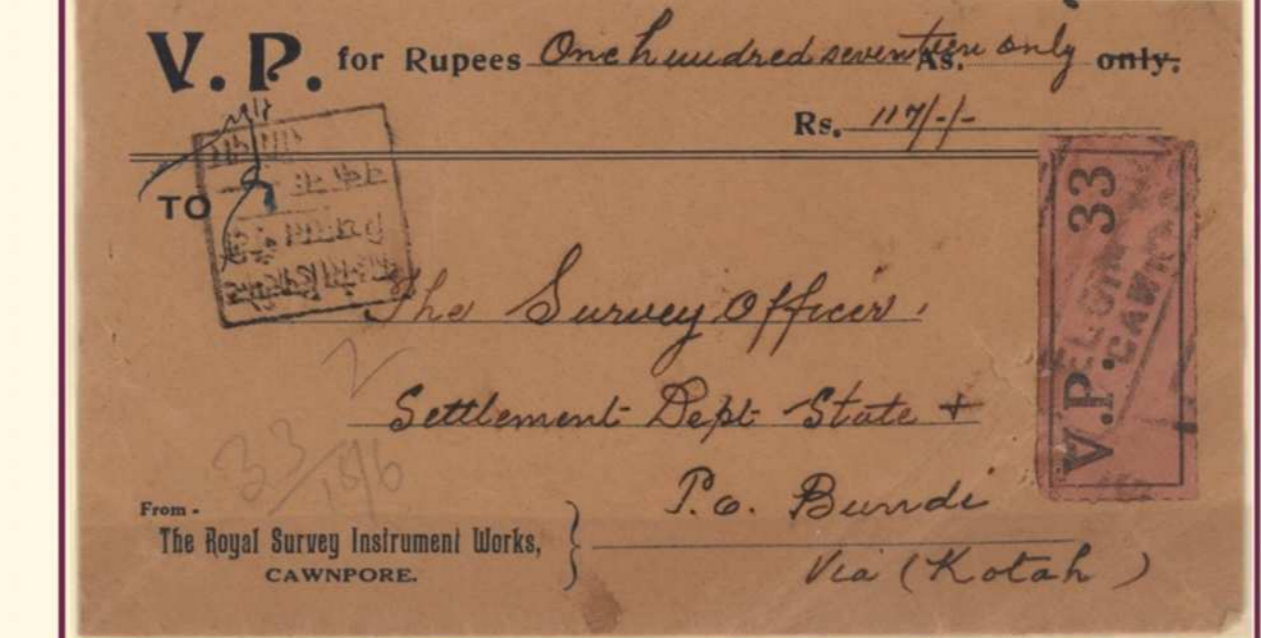 V. P. for Rupees One hundred seventeen only As. only.
Rs. 117/-/-
TO
The Survey Officer,
Settlement Dept State &
P.O. Bundi
Via (Kotah)
From -
The Royal Survey Instrument Works,
CAWNPORE.
V.P. 33
CAWN
2
33/15/6